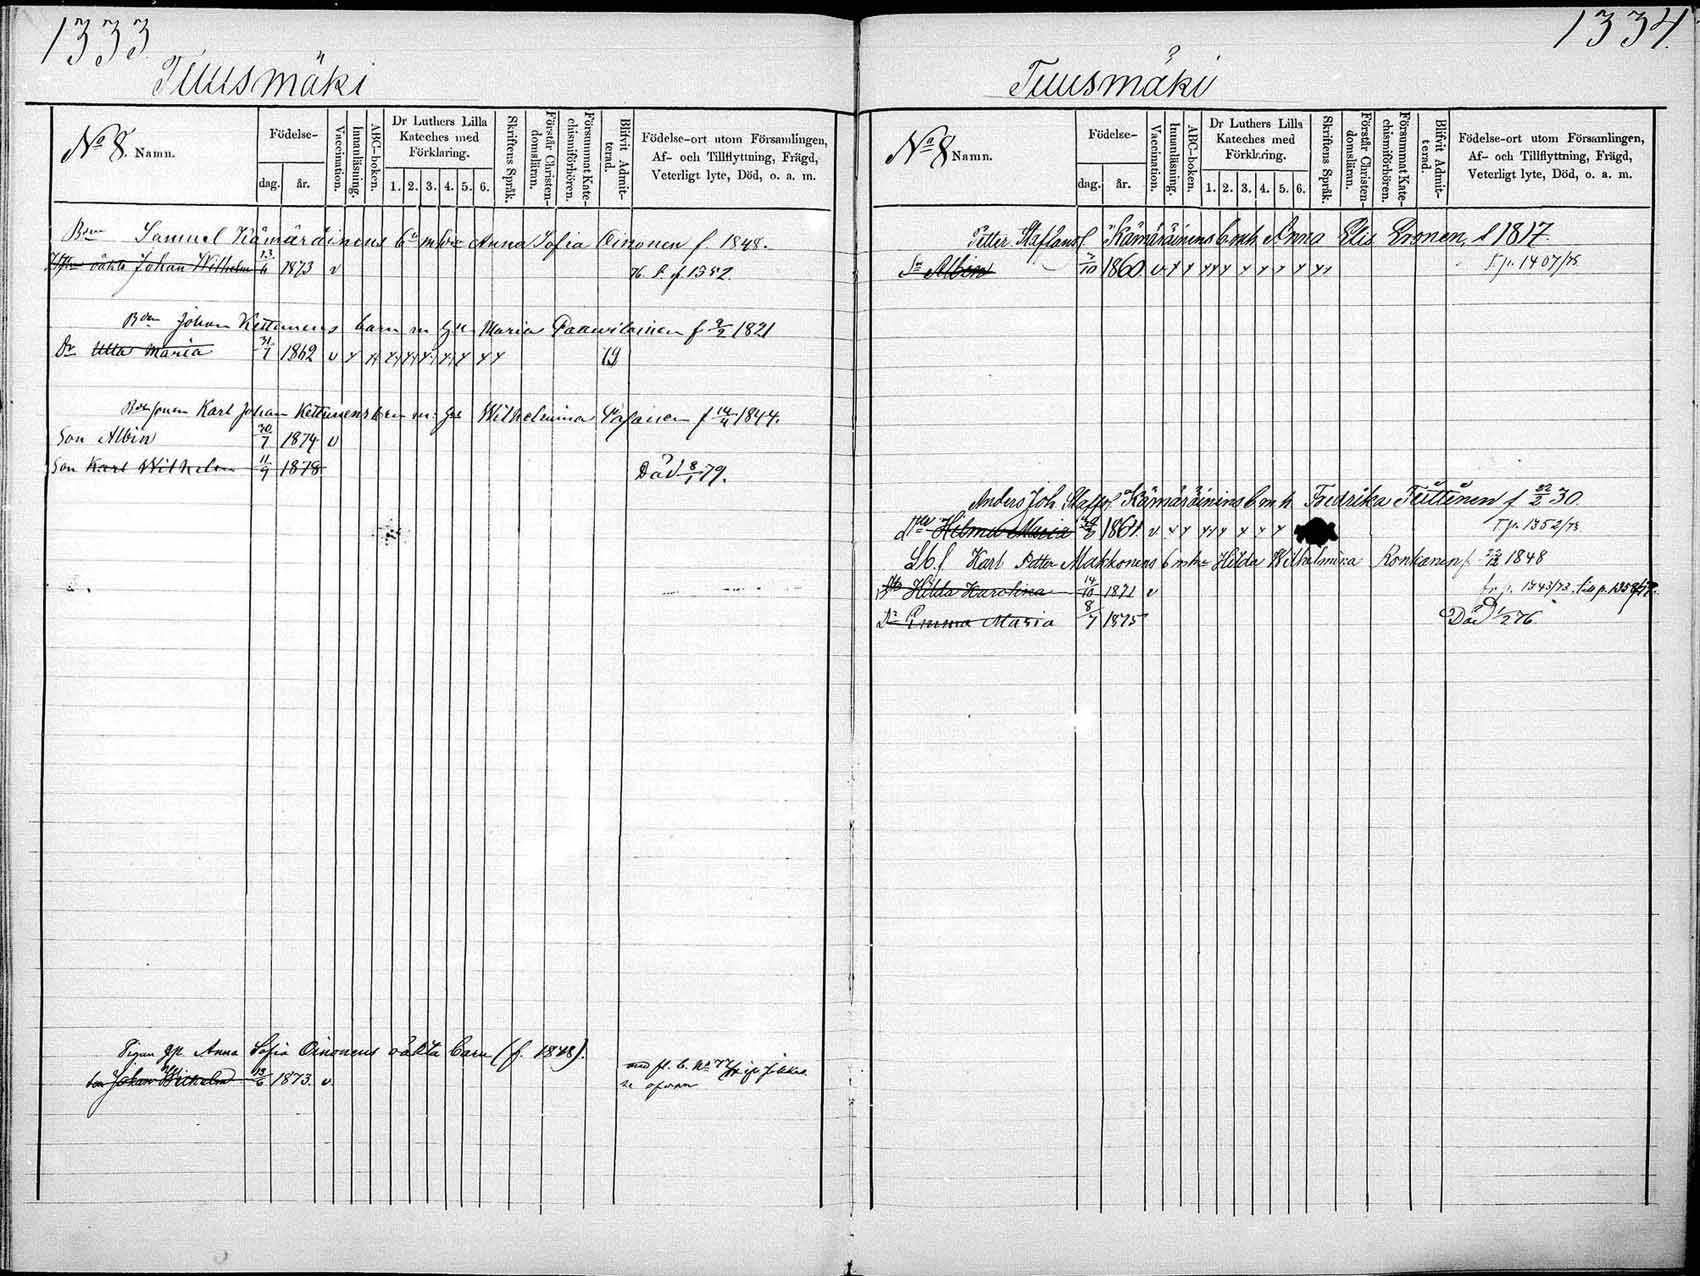 1333
Tuusmäki
No 8. Namn.
Födelse-
dag. år.
Vaccination.
Innanläsning.
ABC-boken.
Dr Luthers Lilla
Kateches med
Förklaring.
1. 2. 3. 4. 5. 6.
Skriftens Språk.
Förstår Christendomsläran.
Försummat Katechismiförhören.
Blifvit Admitterad.
Födelse-ort utom Församlingen,
Af- och Tillflyttning, Frägd,
Veterligt lyte, Död, o. a. m.
Samuel Kämäräinens b:n m hu Anna Sofia Oinonen f 1848.
oäkta Johan Wilhelm 13/6 1873 v
Johan Kettunens barn m Maria Paawilainen f 9/2 1821
Dr Ulla Maria 31/7 1862 v 19
Karl Johan Kettunens m: Wilhelmina f 14/4 1844.
Son Albin 30/7 1874 v
Son Karl Wilhelm 11/9 1878 Död 8/1 79.
Pigan Anna Sofia Oinonens oäkta barn (f. 1848).
son Johan Wilhelm 13/6 1873. v.
1334.
Tuusmäki
No 8 Namn.
Födelse-
dag. år.
Vaccination.
Innanläsning.
ABC-boken.
Dr Luthers Lilla
Kateches med
Förklaring.
1. 2. 3. 4. 5. 6.
Skriftens Språk.
Förstår Christendomsläran.
Försummat Katechismiförhören.
Blifvit Admitterad.
Födelse-ort utom Församlingen,
Af- och Tillflyttning, Frägd,
Veterligt lyte, Död, o. a. m.
Petter Staffans Kämäräinens b m h Anna Elis Eronen, f 1817.
Sn Albin 7/10 1860 1407/78
Anders Joh. Staffs Kämäräinins b m h Fredrika Tiittinen f 22/2 30.
Helma Maria 1861. 1352/78
Karl Petter Makkonens b m hu Hilda Wilhelmina Ronkanen f. 1848
Hilda Karolina 14/10 1871 v
Dr Emma Maria 8/7 1875 Död 1/2 76.